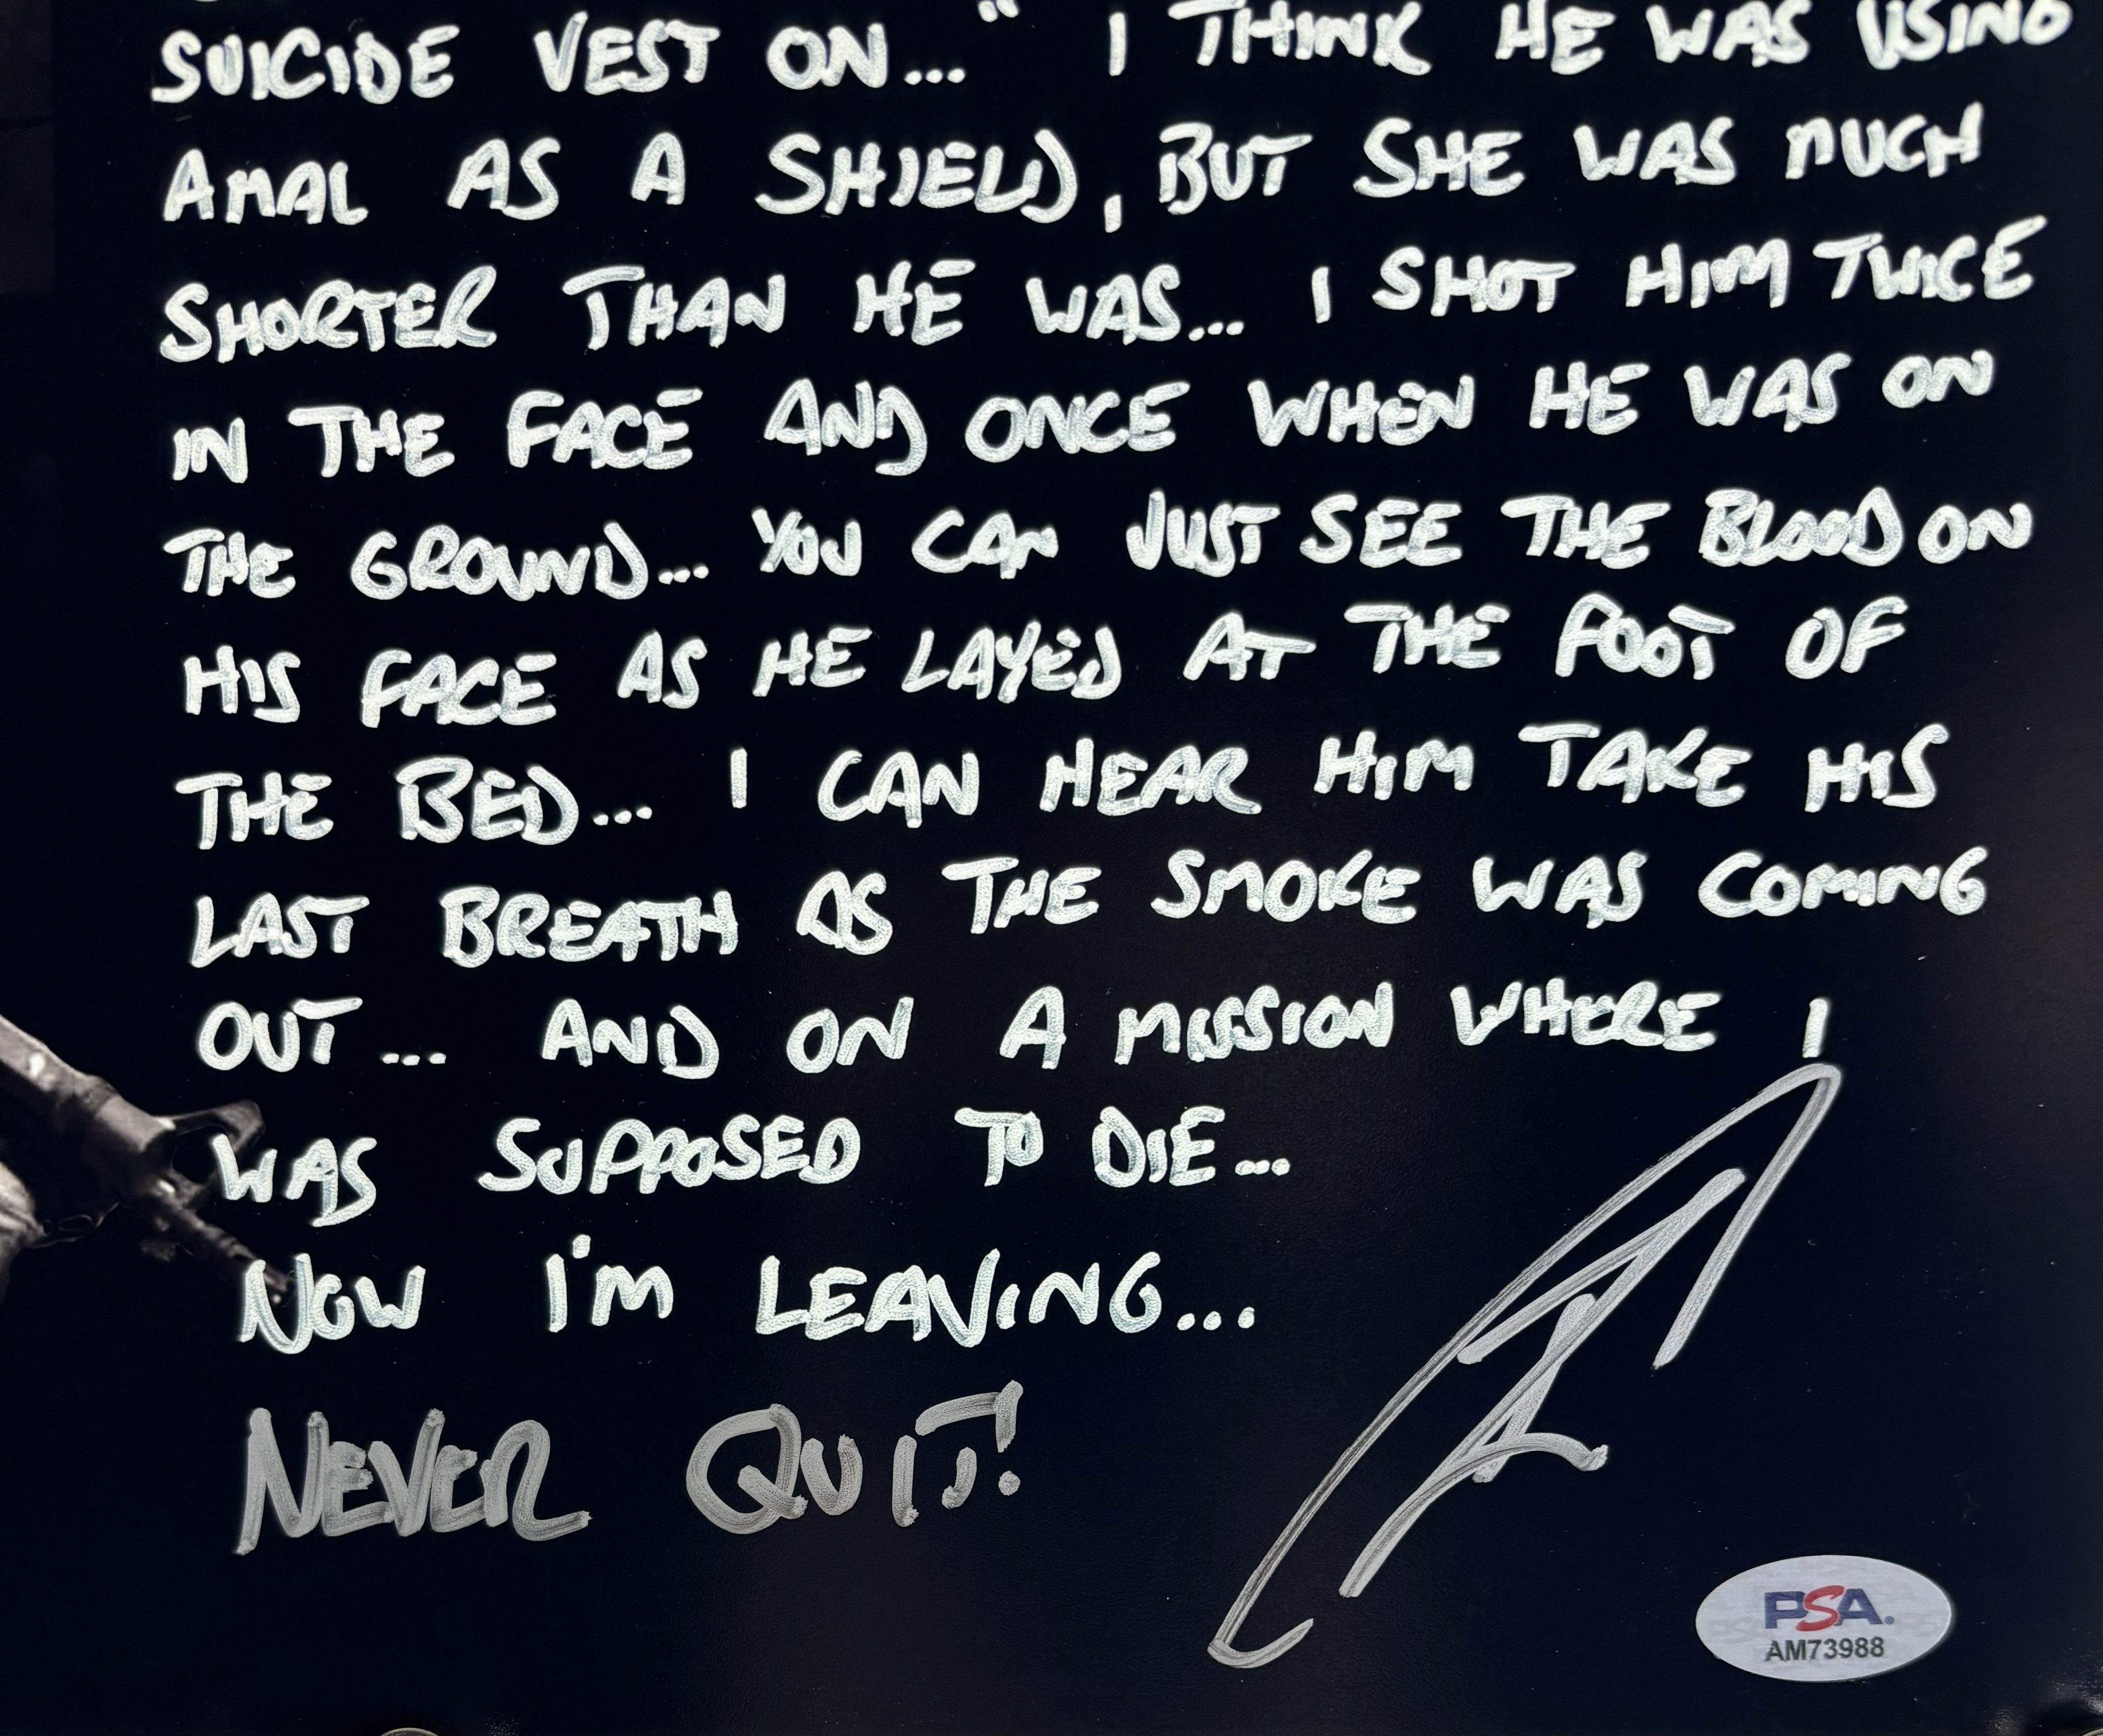 SUICIDE VEST ON..." I THINK HE WAS USING
AMAL AS A SHIELD, BUT SHE WAS MUCH
SHORTER THAN HE WAS... I SHOT HIM TWICE
IN THE FACE AND ONCE WHEN HE WAS ON
THE GROUND... YOU CAN JUST SEE THE BLOOD ON
HIS FACE AS HE LAYED AT THE FOOT OF
THE BED... I CAN HEAR HIM TAKE HIS
LAST BREATH AS THE SMOKE WAS COMING
OUT... AND ON A MISSION WHERE I
WAS SUPPOSED TO DIE...
NOW I'M LEAVING...
NEVER QUIT!
PSA.
AM73988